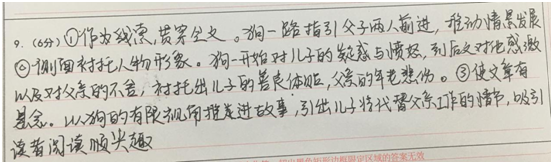 9.(6分)①作为线索,贯穿全文。狗一路指引父子两人前进,推动情景发展
②侧面衬托人物形象。狗一开始对儿子的疑惑与愤怒,到后文对他感激
以及对父亲的不舍,衬托出儿子的善良体贴,父亲的年老悲伤。③使文章有
悬念。以狗的有限视角推进故事,引出儿子将代替父亲工作的情节,吸引
读者阅读兴趣